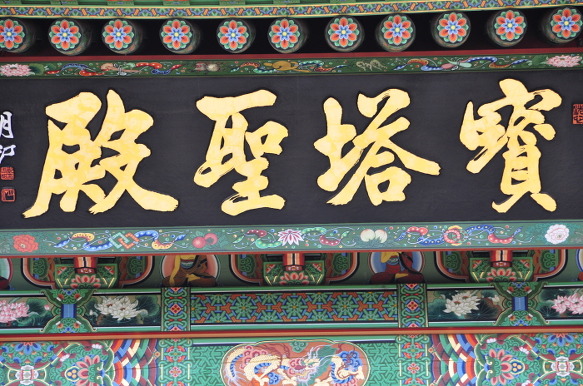 寶塔聖殿